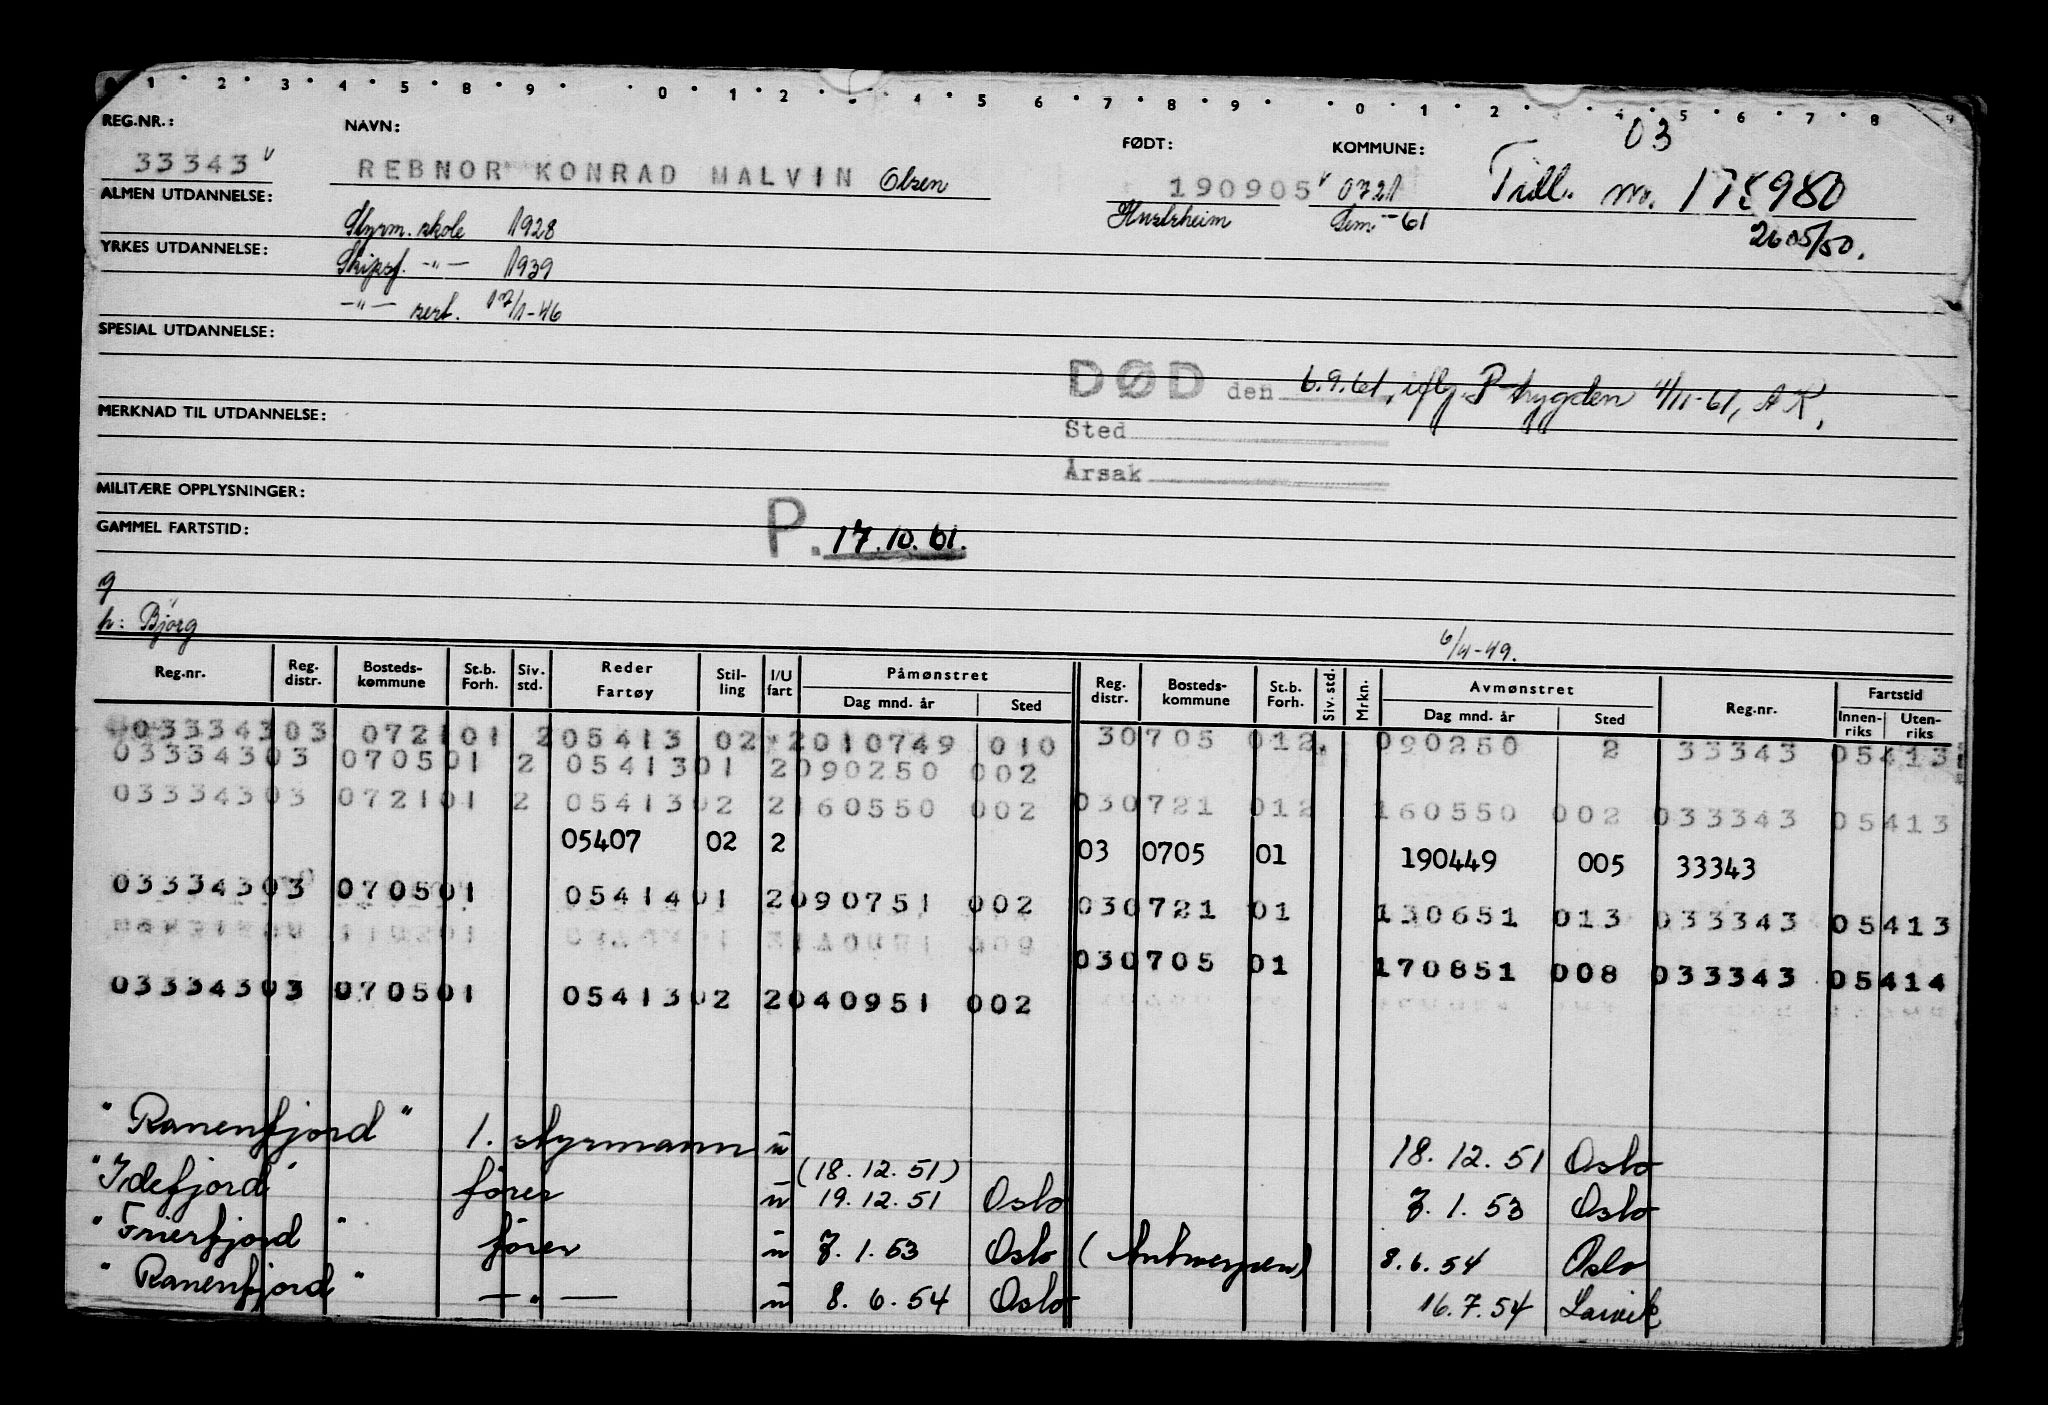 1 2 3 4 5 8 9 0 1 2 4 5 6 7 8 9 0 1 2 4 5 6 7 8 9
REG.NR.: NAVN: FØDT: KOMMUNE: 03
33343 v REBNOR KONRAD MALVIN Olsen 190905 v 0721 Till. nr. 175980
ALMEN UTDANNELSE: Styrm. skole 1928 Husbrheim Sem. -61 2605/50.
YRKES UTDANNELSE: Skipsf. -"- 1939
-"- sert. 17/1-46
SPESIAL UTDANNELSE:
DØD den 6.9.61, iflg. P-trygden 4/11-61, AK,
MERKNAD TIL UTDANNELSE:
Sted
Årsak
MILITÆRE OPPLYSNINGER:
GAMMEL FARTSTID: P. 17.10.61.
g
h: Bjørg
6/4-49.
Reg.nr. Reg. distr. Bosteds-kommune St.b. Forh. Siv. std. Reder Fartøy Stil-ling I/U fart Påmønstret Dag mnd. år Sted Reg. distr. Bosteds-kommune St.b. Forh. Siv. std. Mrkn. Avmønstret Dag mnd. år Sted Reg.nr. Fartstid Innen-riks Uten-riks
03334303 072101 205413 02 2010749 010 30705 012 090250 2 33343 05413
03334303 070501 2 0541301 2090250 002
03334303 072101 2 0541302 2160550 002 030721 012 160550 002 033343 05413
05407 02 2 03 0705 01 190449 005 33343
03334303 070501 0541401 2090751 002 030721 01 130651 013 033343 05413
030705 01 170851 008 033343 05414
03334303 070501 0541302 2040951 002
"Ranenfjord" 1. styrmann u 18.12.51 Oslo
"Idefjord" fører u (18.12.51) 19.12.51 Oslo 7.1.53 Oslo
"Frierfjord" fører u 7.1.53 Oslo (Antwerpen) 8.6.54 Oslo
"Ranenfjord" -"- u 8.6.54 Oslo 16.7.54 Larvik